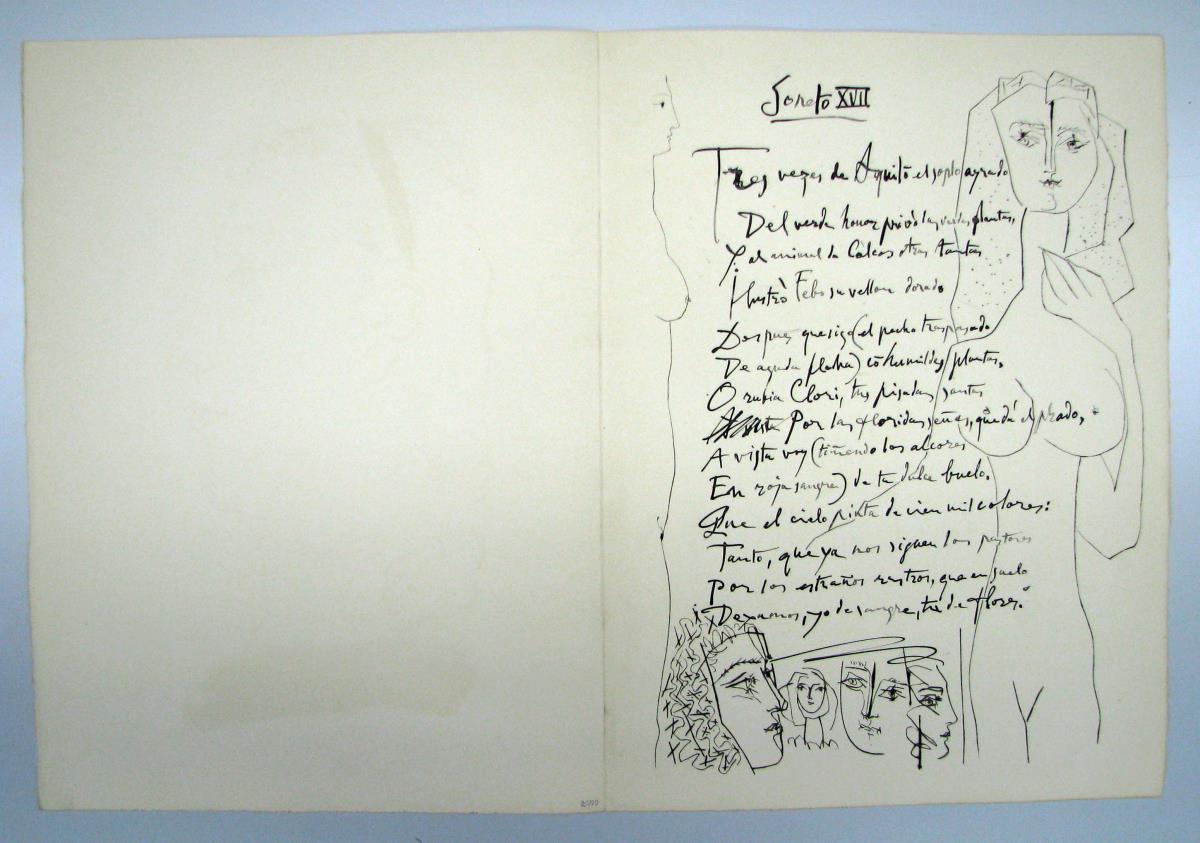 Soneto XVII
Tres vezes de Aquilõ el soplo ayrado
Del verde honor privò las verdes plantas,
Y al animal de Colcos otras tantas
Ilustrò Febo su vellon dorado
Despues que sigo (el pecho traspasado
De aguda flecha) cõ humildes plantas,
O rubia Clori, tus pisadas santas
Por las floridas señas, que dá el prado,
A vista voy (tiñendo los alcores
En roja sangre) de tu dulce buelo,
Que el cielo pinta de cien mil colores:
Tanto, que ya nos siguen los pastores
Por los estraños rastros, que en suelo
Dexamos, yo de sangre, tu de flores.